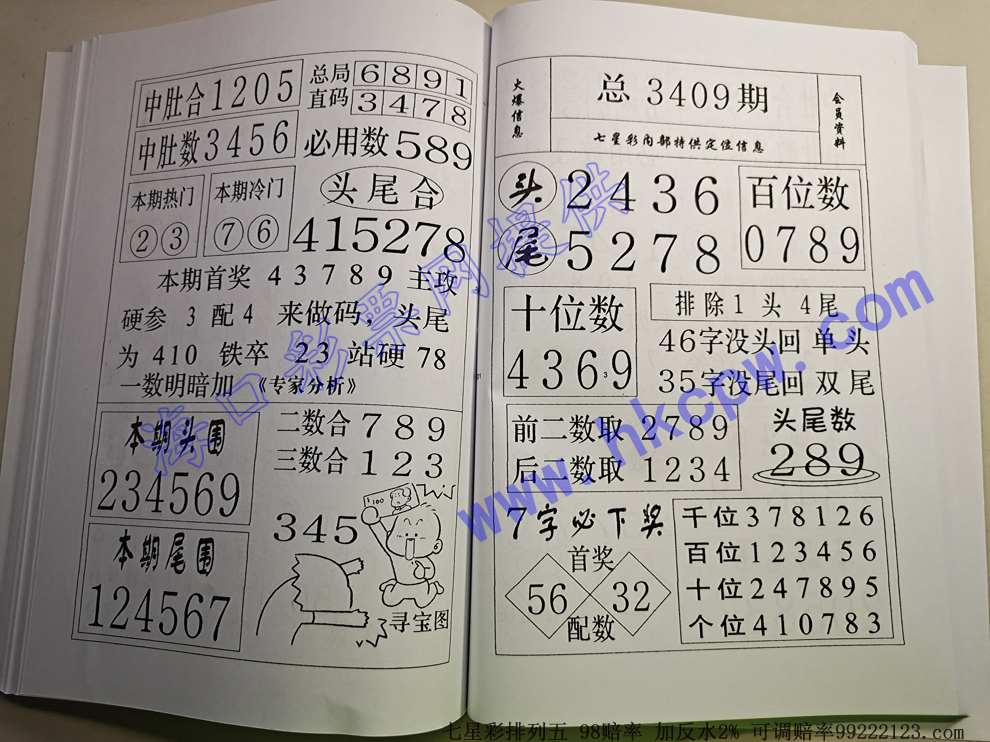 中肚合1205
中肚数3456
总局6891
直码3478
必用数589
本期热门
②③
本期冷门
⑦⑥
头尾合
415278
本期首奖 4 3 7 8 9 主攻
硬参 3 配4 来做码，头尾
为 410 铁卒 23 站硬 78
一数明暗加 《专家分析》
本期头围
234569
本期尾围
124567
二数合 7 8 9
三数合 1 2 3
345
100
寻宝图
火爆信息
总 3409期
七星彩内部特供定位信息
会员资料
头 2436
尾 5278
百位数
0789
十位数
4369
3
排除1 头 4尾
46字没头回 单 头
35字没尾回 双 尾
前二数取 2789
后二数取 1234
头尾数
289
7字必下奖
首奖
56 32
配数
千位378126
百位123456
十位247895
个位410783
海口彩票网提供
www.hkcpw.com
七星彩排列五 98赔率 加反水2% 可调赔率99222123.com